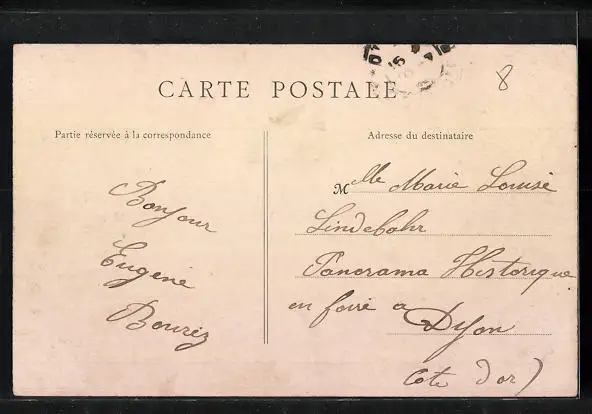 CARTE POSTALE
8
Partie réservée à la correspondance
Bonjour
Eugène
Bourez
Adresse du destinataire
Mlle Marie Louise
Lindebahr
Panorama Historique
en foire a Dijon
Cote d'or)